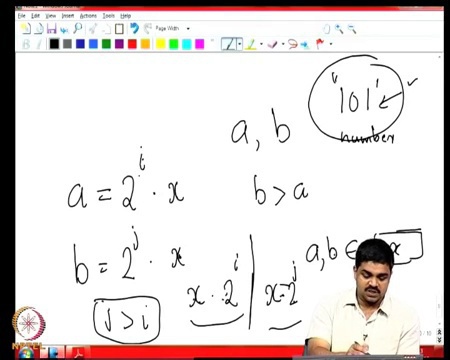 File Edit View Insert Actions Tools Help
Page Width
"101"
number
a, b
a = 2^i · x
b > a
b = 2^j · x
a, b ∈
x
j > i
x · 2^i
x = 2^j